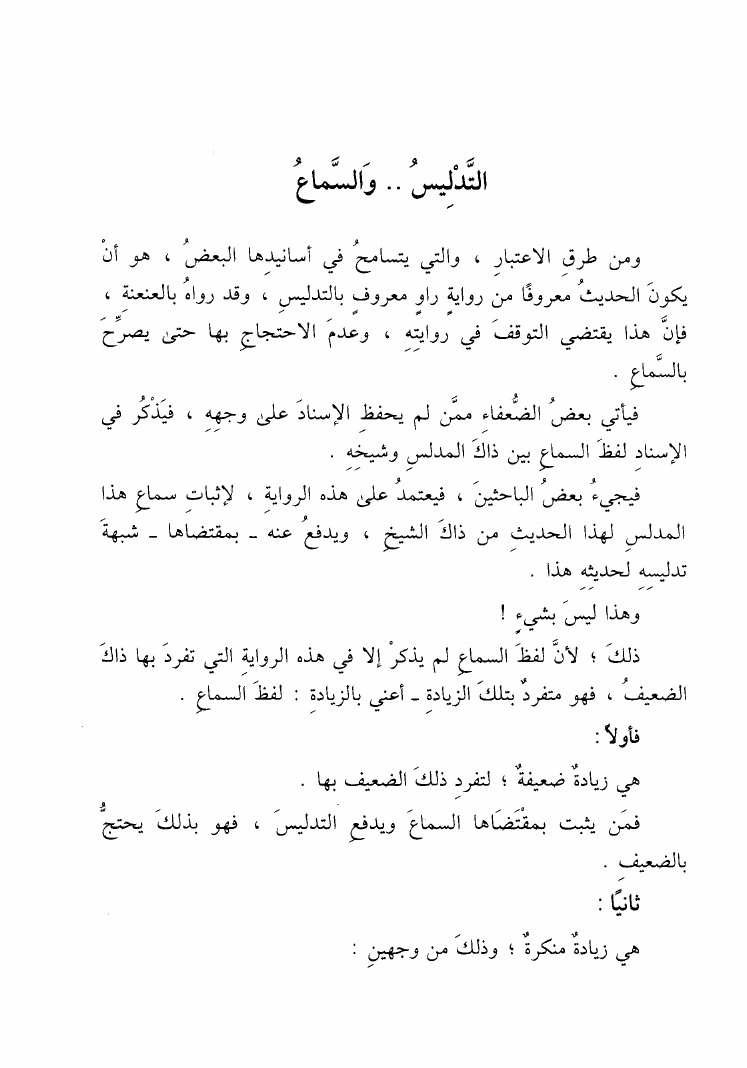 التَّدْلِيسُ .. وَالسَّمَاعُ
ومن طرقِ الاعتبارِ ، والتي يتسامحُ في أسانيدِها البعضُ ، هو أنْ
يكونَ الحديثُ معروفًا من روايةِ راوٍ معروفٍ بالتدليسِ ، وقد رواهُ بالعنعنةِ ،
فإنَّ هذا يقتضي التوقفَ في روايتِهِ ، وعدمَ الاحتجاجِ بها حتىٰ يصرِّحَ
بالسَّماعِ .
فيأتي بعضُ الضُّعفاءِ ممَّن لم يحفظِ الإسنادَ علىٰ وجهِهِ ، فيَذْكُر في
الإسنادِ لفظَ السماعِ بين ذاكَ المدلسِ وشيخِهِ .
فيجيءُ بعضُ الباحثينَ ، فيعتمدُ علىٰ هذه الروايةِ ، لإثباتِ سماعِ هذا
المدلسِ لهذا الحديثِ من ذاكَ الشيخِ ، ويدفعُ عنه ـ بمقتضاها ـ شبهةَ
تدليسِهِ لحديثِهِ هذا .
وهذا ليسَ بشيءٍ !
ذلكَ ؛ لأنَّ لفظَ السماعِ لم يذكرْ إلا في هذه الروايةِ التي تفردَ بها ذاكَ
الضعيفُ ، فهو متفردٌ بتلكَ الزيادةِ ـ أعني بالزيادةِ : لفظَ السماعِ .
فأولاً :
هي زيادةٌ ضعيفةٌ ؛ لتفردِ ذلكَ الضعيف بها .
فمَن يثبت بمقْتَضَاها السماعَ ويدفعِ التدليسَ ، فهو بذلكَ يحتجُّ
بالضعيفِ .
ثانيًا :
هي زيادةٌ منكرةٌ ؛ وذلكَ من وجهينِ :